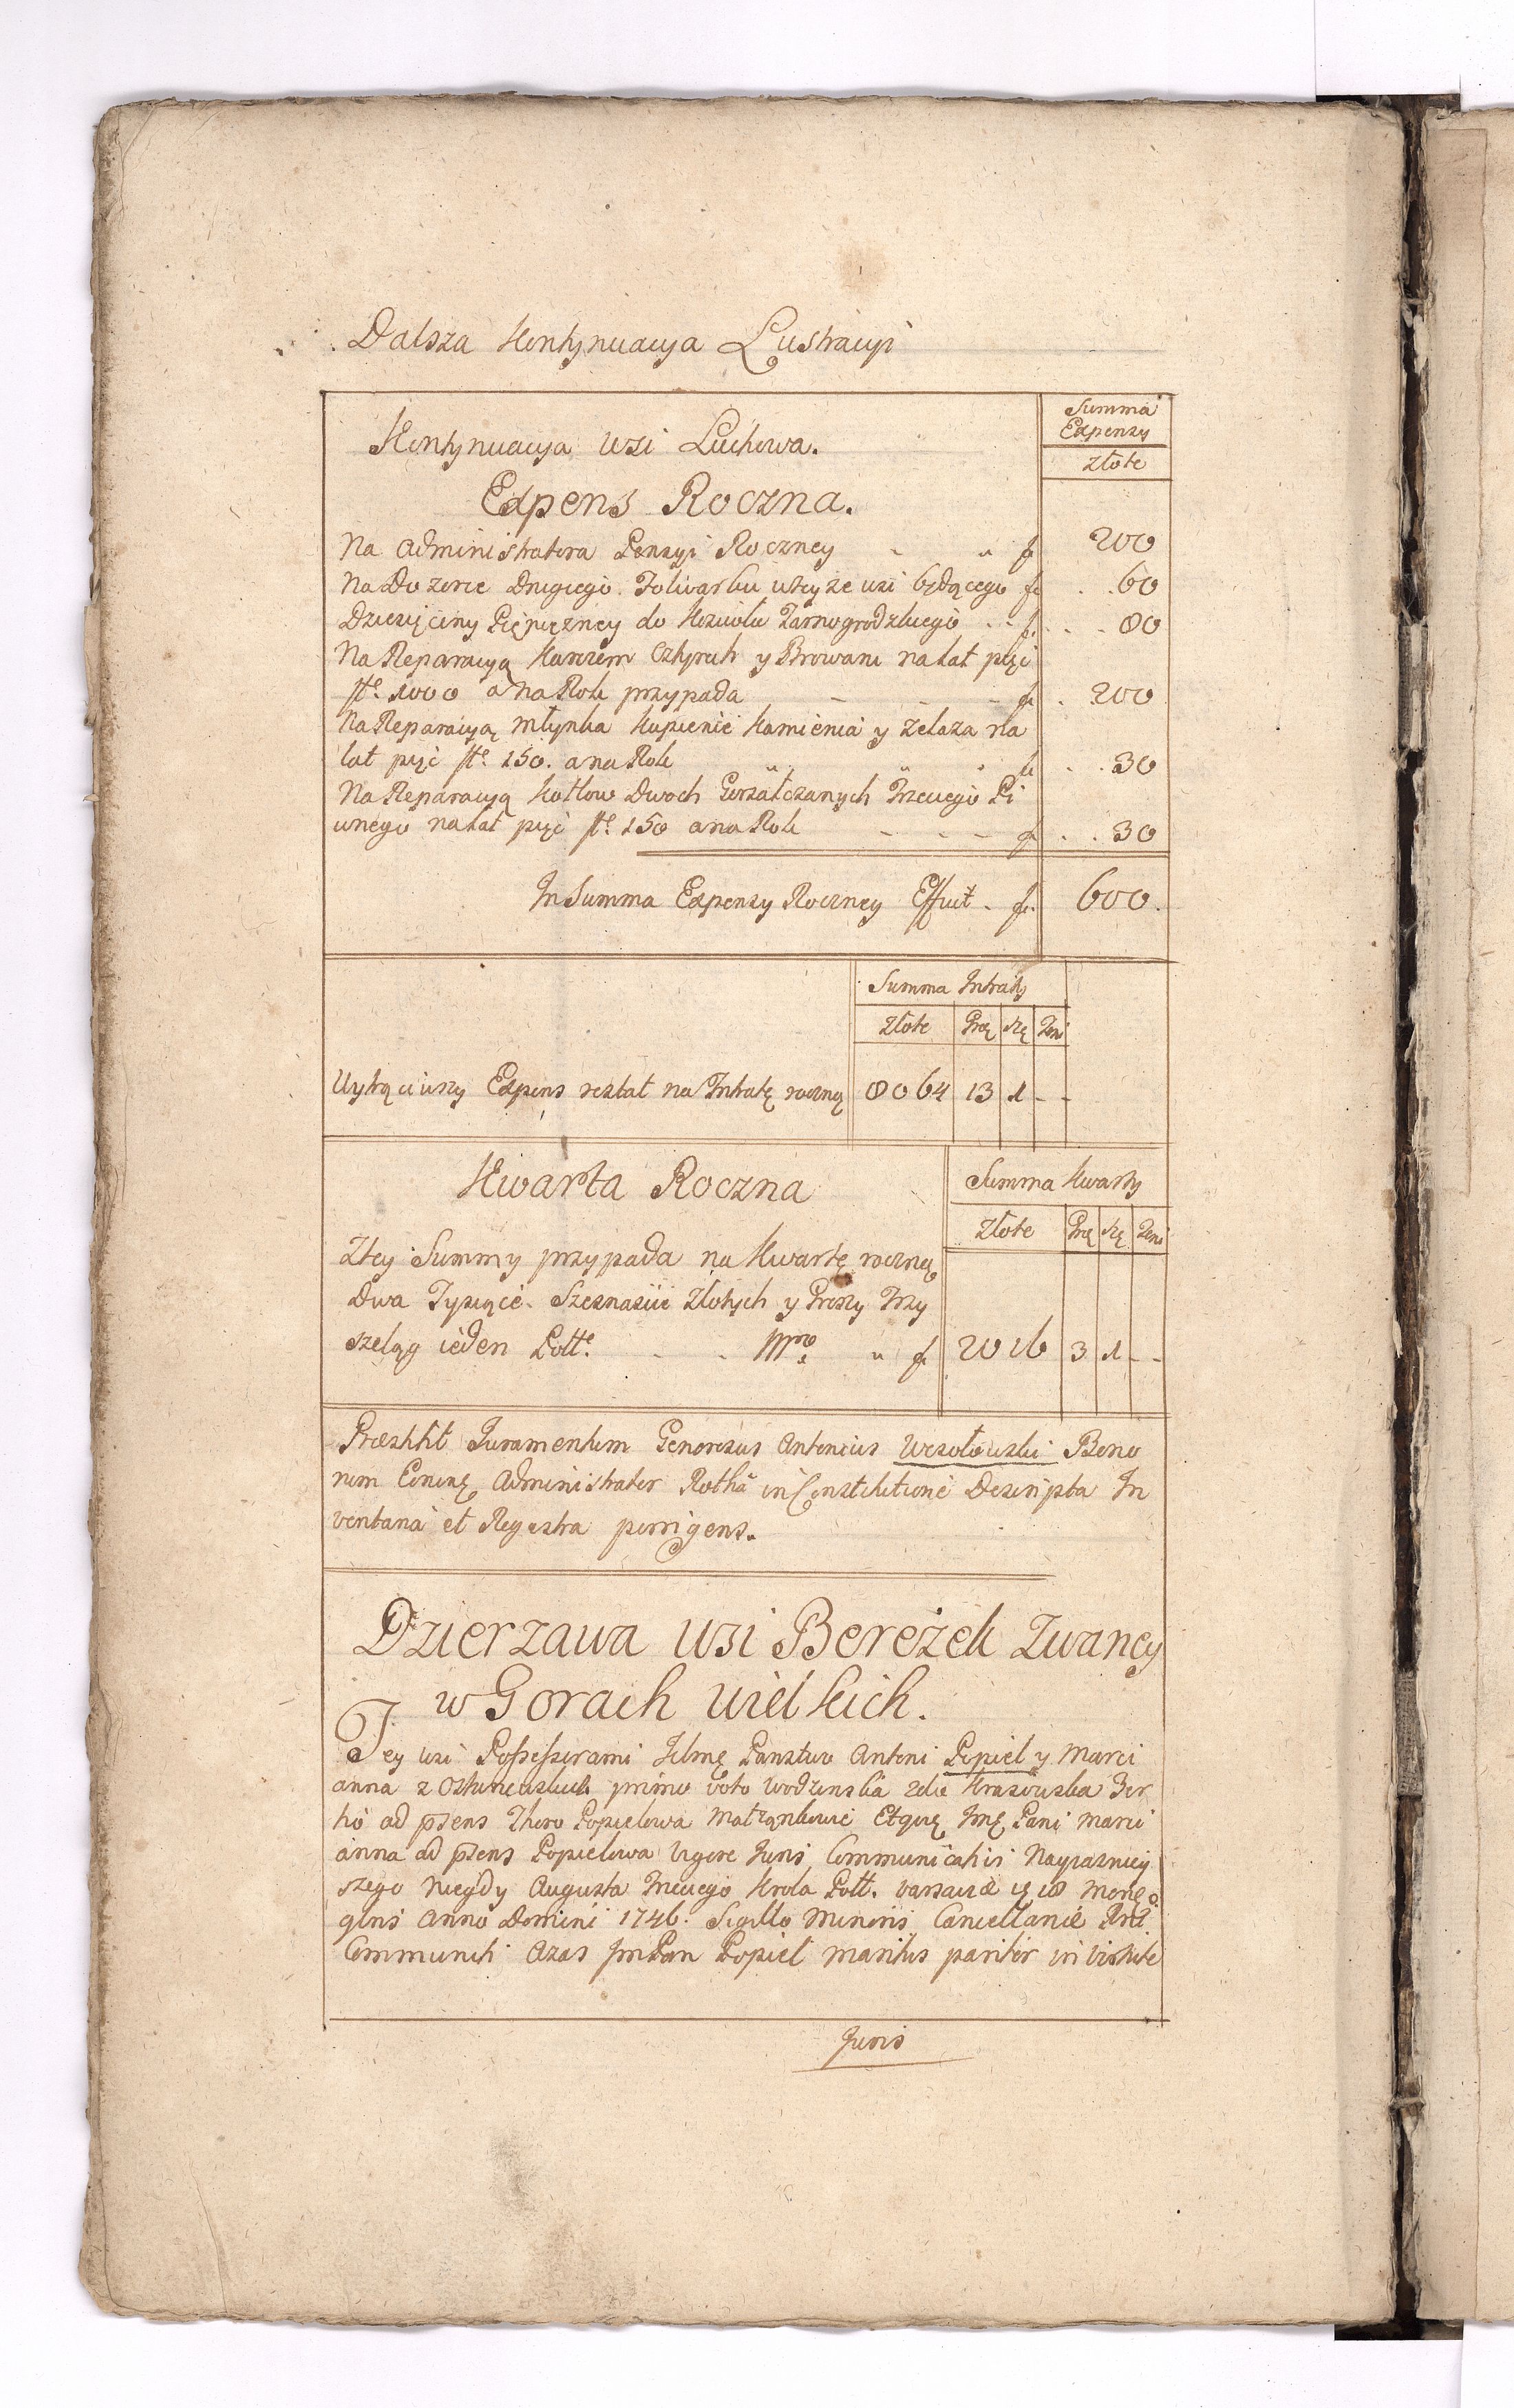 Dalsza Kontynuacya Lustracyi
Summa
Expensy
Złote
Kontynuacya Wsi Luchowa.
Expens Roczna.
Na Administratora Pensyi Roczney - " f 200
Na Dozorce Drugiego Folwarku w teyze wsi będącego f 60
Dziesięciny Pięniężney do Kościoła Tarnogrodzkiego - - f. 80
Na Reparacyą Karczem Cztyrech y Browaru na lat pięć
fte. 1000 a na Rok przypada - - - f. 200
Na Reparacyą Młynka Kupienie Kamienia y Zelaza na
lat pięć fte. 150. a na Rok " " " f 30
Na Reparacyą Kotłow Dwoch Gorzałczanych Trzeciego Pi
wnego na lat pięć fte. 150 a na Rok - - - f 30
In Summa Expensy Roczney Effuit - f. 600.
Summa Intraty
Złote Gro: Szę Deni
Wytrąciwszy Expens restat na Intratę roczną 8064 13 1 - -
Kwarta Roczna
Summa Kwarty
Złote Gro: Szę Deni
Z tey Summy przypada na Kwartę roczną
Dwa Tysiące Szesnascie Złotych y Groszy Trzy
szeląg ieden Poll: - - " f 2016 3 1 - -
Præstitit Juramentum Generosus Antonius Wesołowski Bono
rum Administrator Rotha in Constitutione Descripta In
ventaria et Regestra porrigens.
Dzierzawa Wsi Bereżek Zwaney
w Gorach Wielkich.
Tey wsi Possessorami Jchmę Panstwo Antoni Popiel y Marci
anna z primo voto Wodzinska 2do Krasowska Ter
tio ad præsens Thoro Popielowa Małżąnkowie Imę Pani Marci
anna ad præsens Popielowa Vigore Juris Communicativi Nayiasniey
szego Niegdy Augusta Trzeciego Krola Poll. Varsaviæ 18
Anno Domini 1746. Sigillo Minoris Cancellariæ
Communiti Azas Jm Pan Popiel maritus pariter in Virtute
Juris